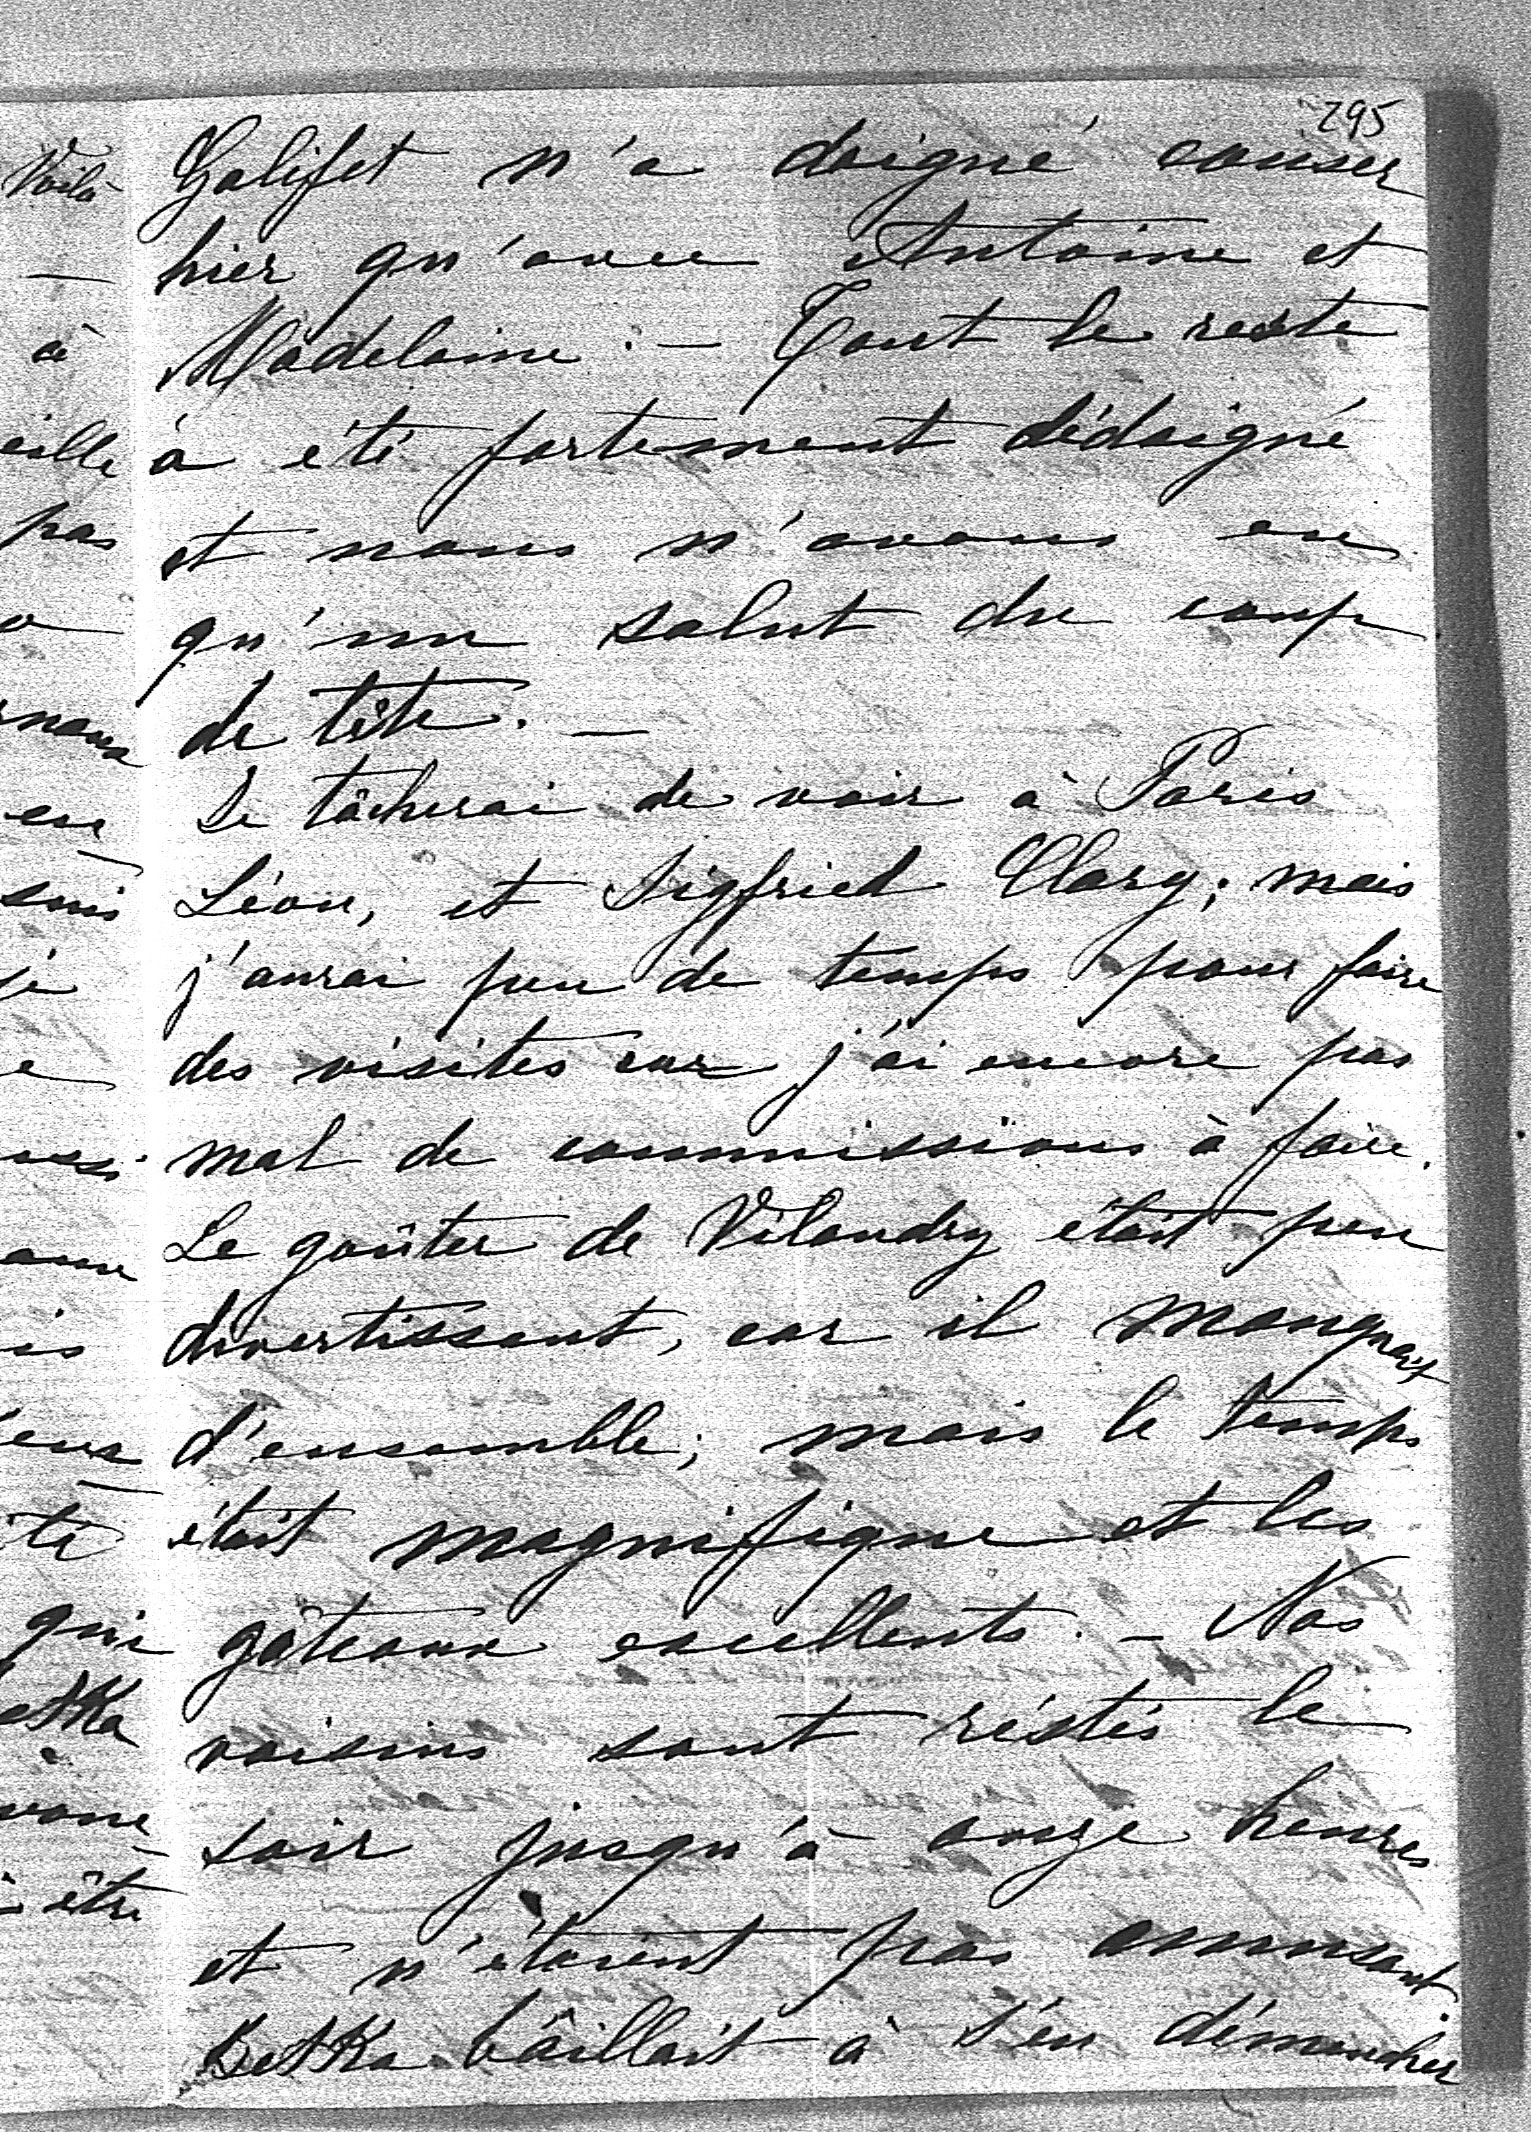 295
Galifet n'a daigné causer
hier qu'avec Antoine et
Madelaine. — Tout le reste
à été fortement dédaigné
et nous n'avons eu
qu'un salut du coup
de tête. —
Je tâcherai de voir à Paris
Léon, et Sigfried Clary; mais
j'aurai peu de temps pour faire
des visites car j'ai encore pas
mal de commissions à faire.
Le goûter de Vilandry était peu
divertissant, car il manquait
d'ensemble; mais le temps
était magnifique et les
gâteaux excellents. — Nos
voisins sont réstés le
soir jusqu'à onze heures
et n'étaient pas amusant.
Betka bâillait à s'en démancher
Voilà
—
à
eille
pas
nous
en
suis
je
e
ussi
is
ité
qui
etka
être